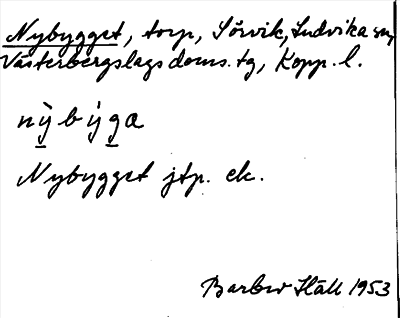 Nybygget, torp, Sörvik, Ludvika sn,
Västerbergslags doms. tg, Kopp. l.
nỳbýga
Nybygget jtp. ek.
Häll 1953